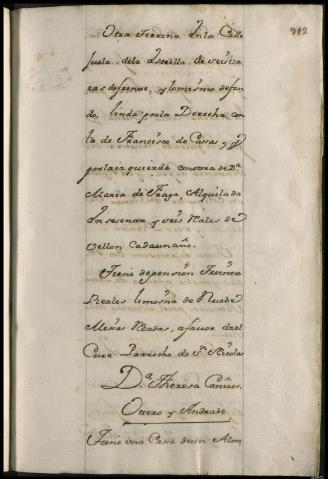 912
Otra Terrena en la Calle
juela de la Estrella de seis va
ras de frente, y lo mismo de fon
do, linda por la Derecha con
la de Francisco de Casas, y
por la izquierda con otra de Dª
Maria de Fraga, Alquilada
en sesenta y seis Reales de
vellon Cada un año.
Tiene de pension Treinta
Reales limosna de Nuebe
Misas Rezadas, a favor de el
Cura Parrocho de Sn. Nicolas
Dª. Theresa
Otero y Andrade
Tiene una Casa de un Alto,